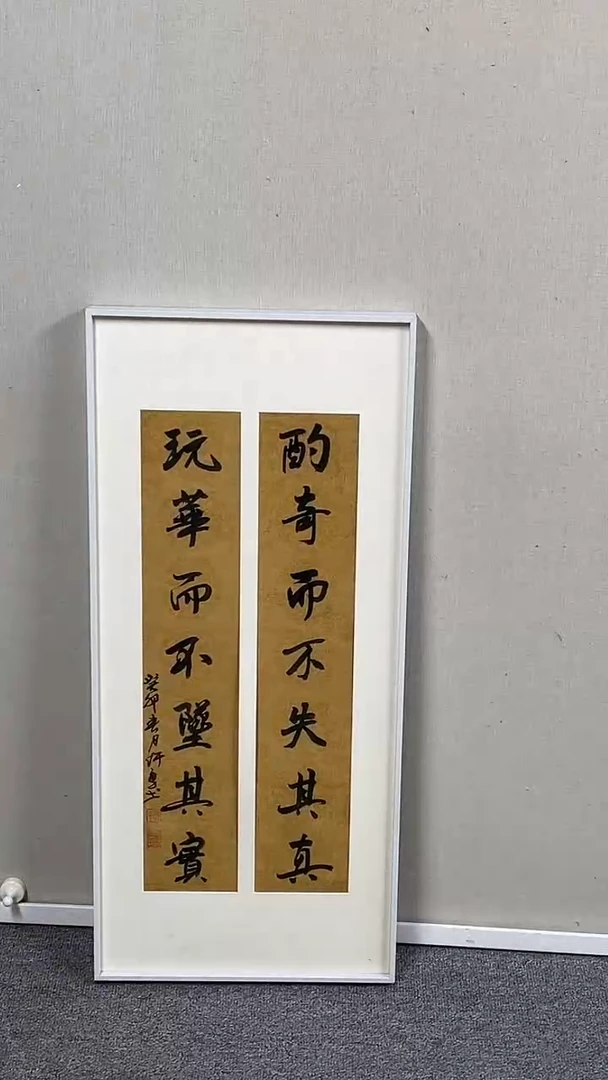 酌奇而不失其真
玩華而不墜其實
癸卯春月